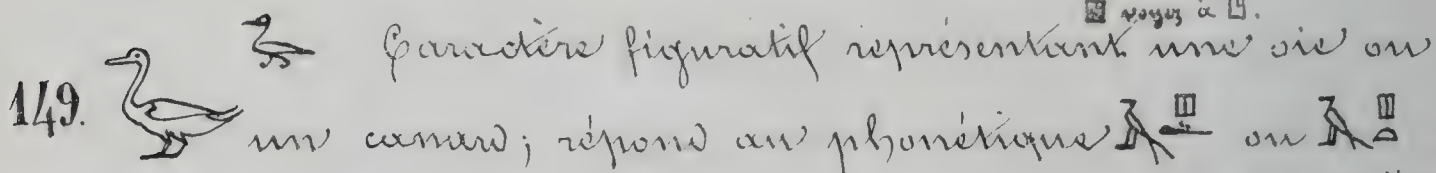 voyez à
Caractère figuratif représentant une oie ou
149. un canard; répond au phonétique ou